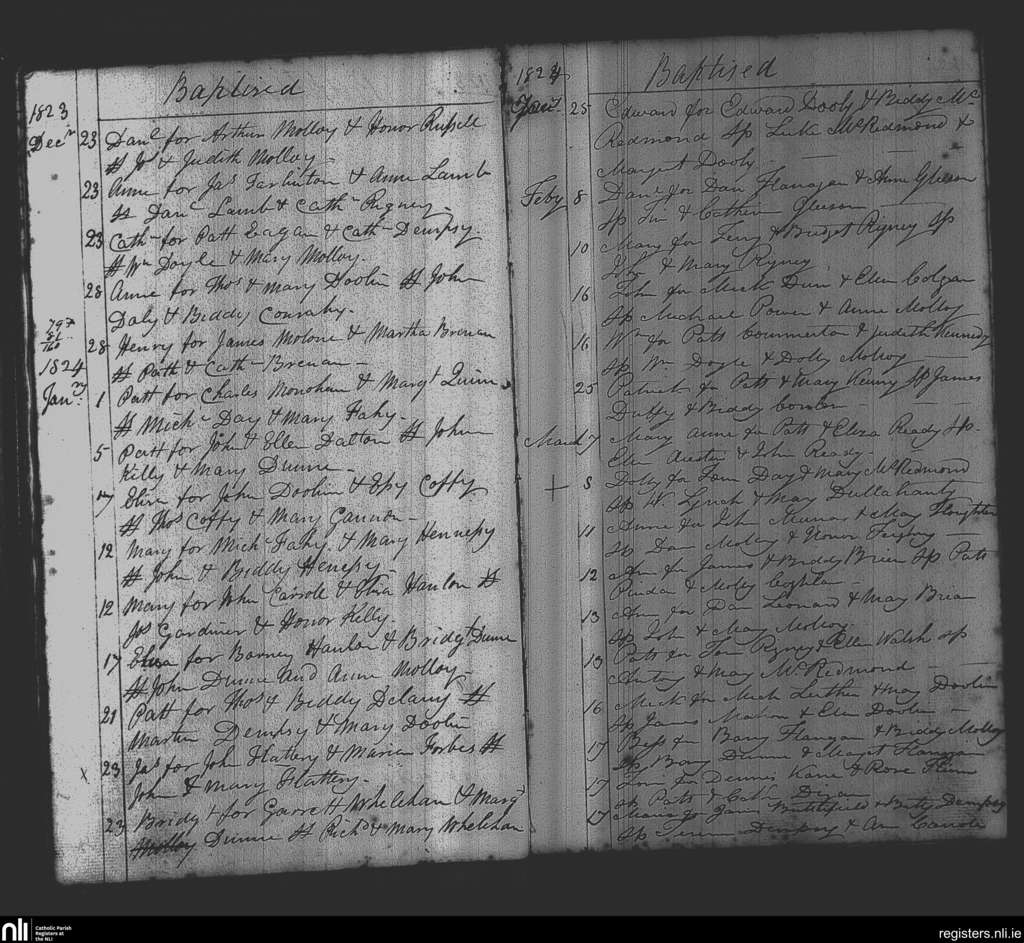 Baptised
1823
Decr 23 Danl for Arthur Molloy & Honor Russell
Sp Js & Judith Molloy -
23 Anne for Jas Tarlinton & Anne Lamb
Sp Danl Lamb & Cathn Rigney -
23 Cathn for Patt Eagan & Cathn Dempsy.
Sp Wm Doyle & Mary Molloy.
28 Anne for Thos & Mary Doolin Sp John
Daly & Biddy Conrahy.
797
28 Henry for James Molone & Martha Brenan
Sp Patk & Cath- Brenan -
1824
Jany 1 Patt for Charles Monohan & Margt Quinn
Sp Michl Day & Mary Fahy -
5 Patt for John & Ellen Dalton Sp John
Killy & Mary Dunne -
7 Eliza for John Doolin & Espy Coffy
Sp Thos Coffy & Mary Gannon -
12 Mary for Michl Fahy. & Mary Hennesy
Sp John & Biddy Henesy -
12 Mary for John Carroll & Eliza Hanlon Sp
Jos Gardiner & Honor Kelly.
17 Eliza for Barney Hanlon & Bridgt Dunne
Sp John Dunne and Anne Molloy
21 Patt for Thos & Biddy Delany Sp
Martin Dempsy & Mary Doolin
23 Jas for John Flattery & Maria Forbes Sp
x John & Mary Flattery.
23 Bridgt for Garrett Whelehan & Margt
Molloy Dunne Sp Richd & Mary Whelehan
1824 Baptised
Jany 25 Edward for Edward Dooly & Biddy Mc
Redmond Sp Luke McRedmond &
Margert Dooly -
Feby 8 Danl for Dan Flanagan & Anne Gleeson
Sp Tim & Cathrin Gleeson
10 Mary for Ferry & Bridget Rigney Sp
John & Mary Rigney
16 John for Mick Dunn & Ellen Colgan
Sp Michael Power & Anne Molloy
16 Wm for Patt & Judith Kennedy
Sp Wm Doyle & Dolly Molloy
25 Patrick for Patt & Mary Kenny Sp James
Duffy & Biddy Conlon -
March 7 Mary Anne for Patt & Eliza Ready Sp.
Ellen & John Ready -
+ 8 Dolly for Tom Day & Mary McRedmond
Sp W. Lynch & May Dullahanty
11 Anne for John & May Naughten
Sp Dan Molloy & Honor
12 Ann for James & Biddy Brien Sp Patt
& Molly Coghlan -
13 Ann for Dan Leonard & May Brian
Sp John & May Molloy
13 Patt for Tom Rigney & Ellen Walsh Sp
Antony & May McRedmond
16 Mick for Mick & May Doolin
Sp James Mahon & Ellen Doolin -
17 Bess for Barny Flanagan & Biddy Molloy
Sp Barny Dunne & Margret Flanagan
17 for Dennis Kane & Rose
Sp Patt & Cath
17 Maria for James & Betty Dempsey
Sp Dempsey & Ann
nli Catholic Parish
Registers at
the NLI
registers.nli.ie